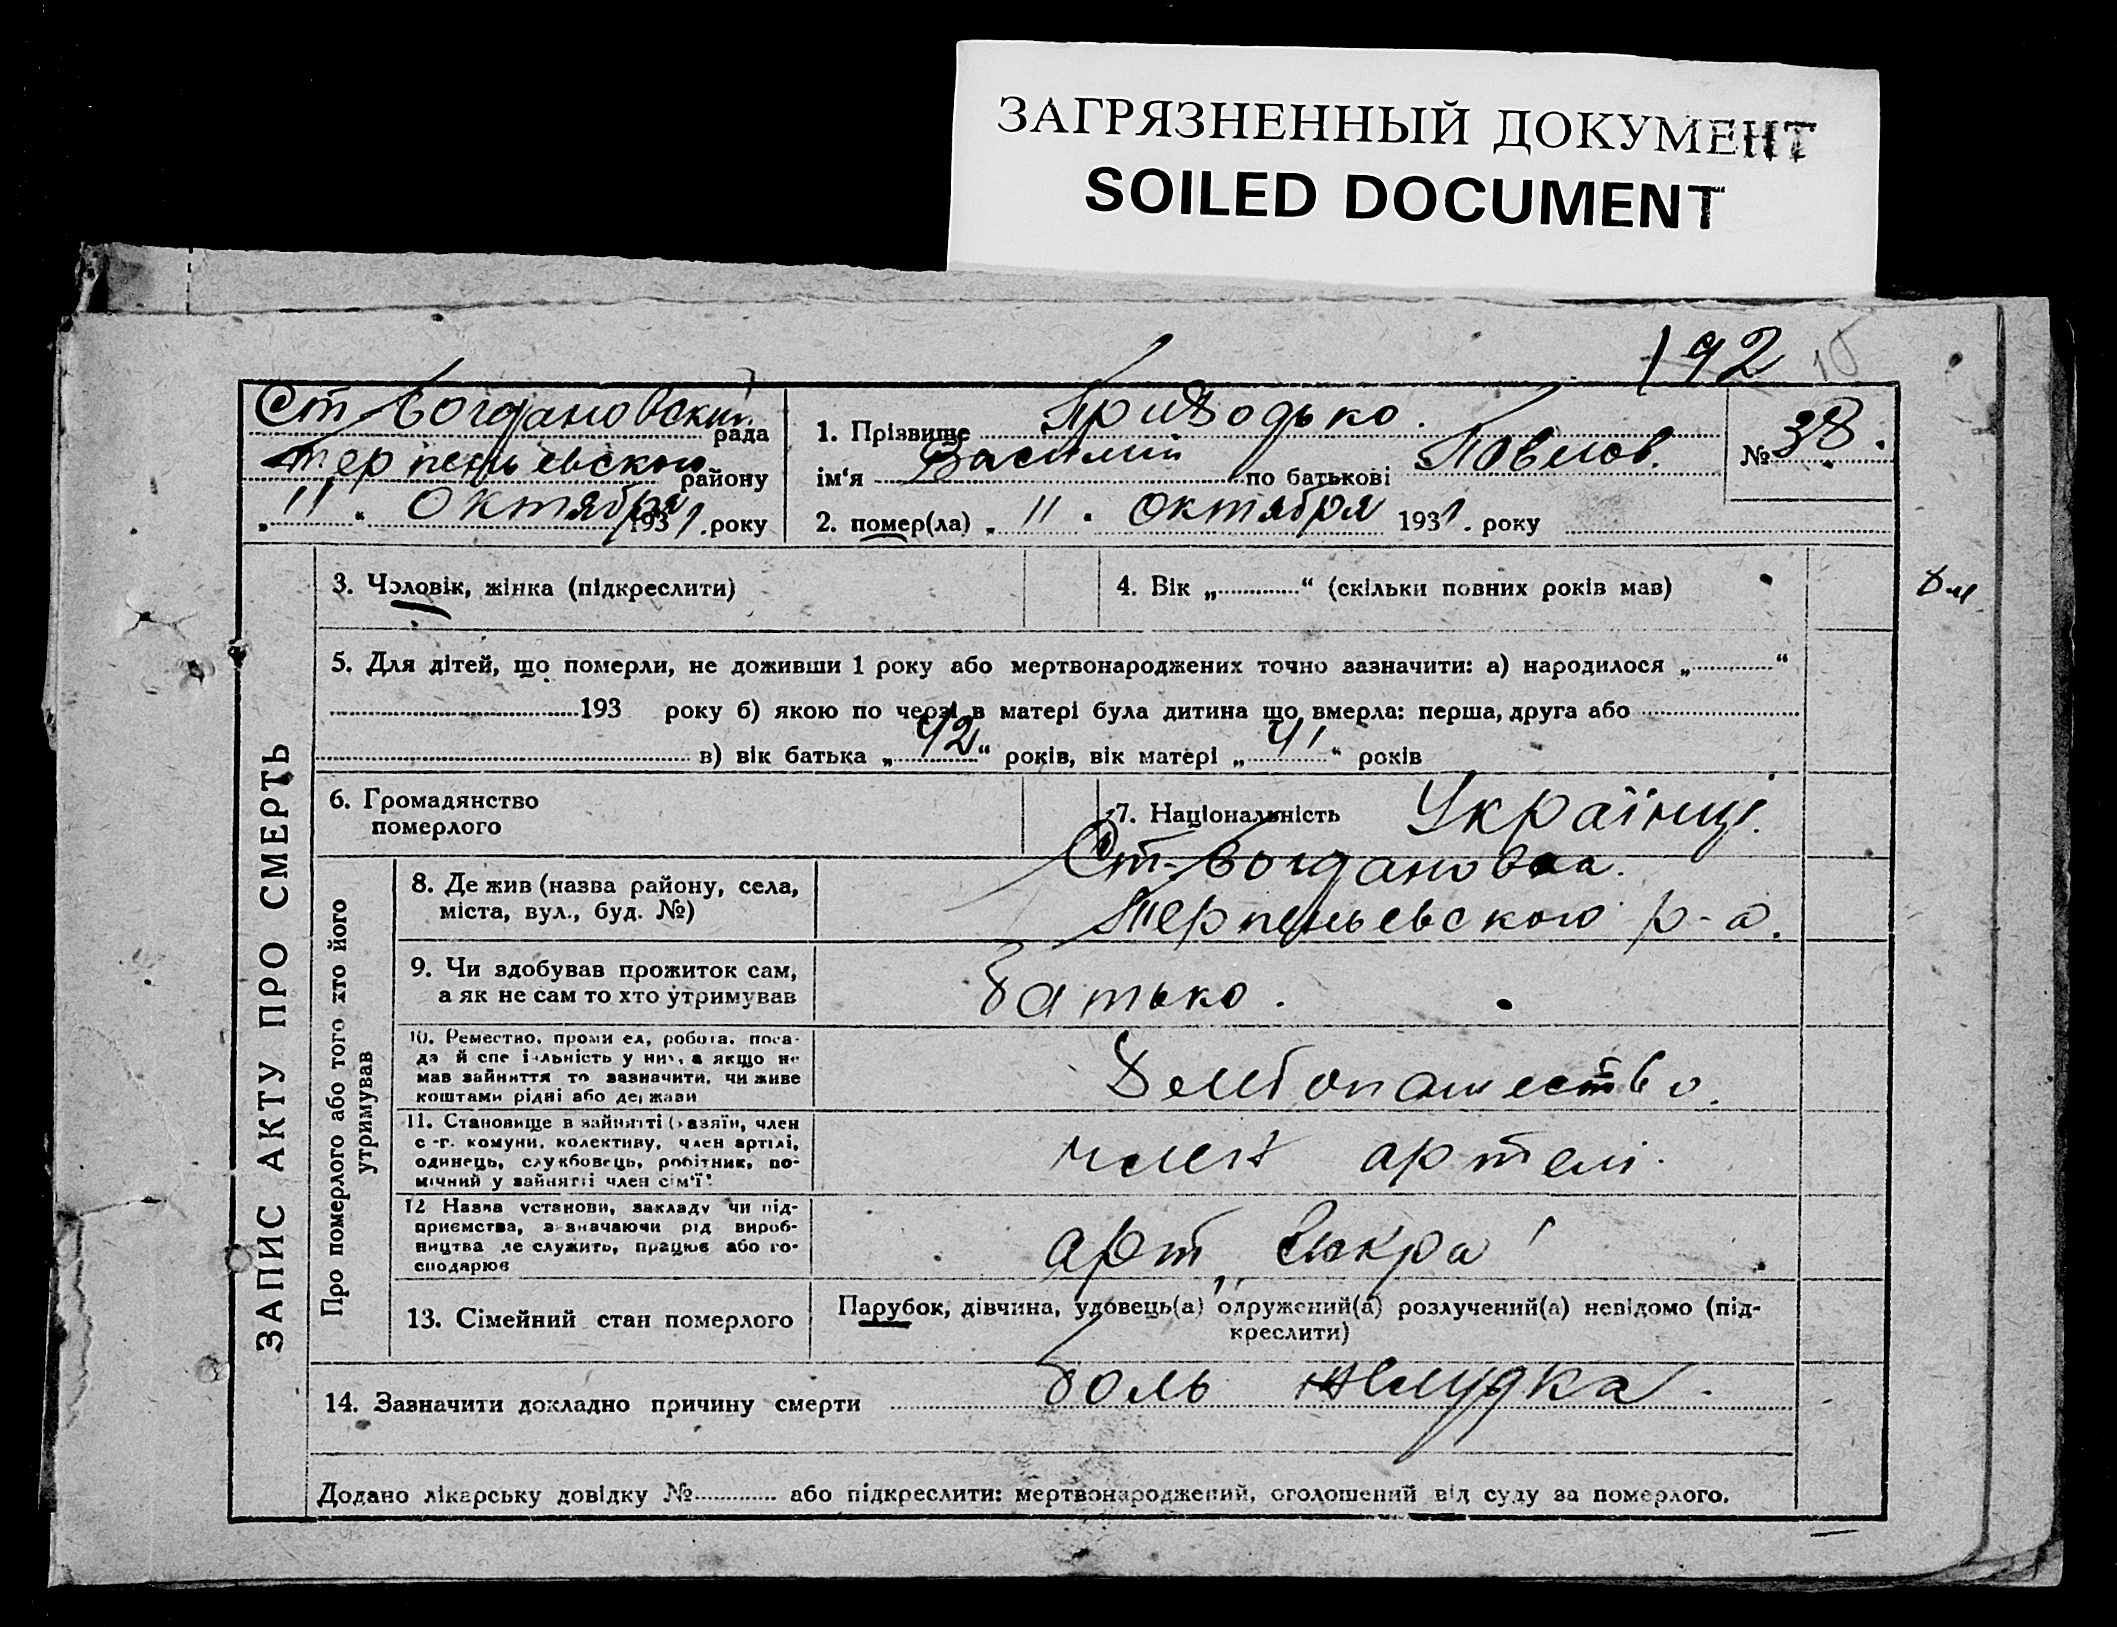 ЗАГРЯЗНЕННЫЙ ДОКУМЕНТ
SOILED DOCUMENT
192
Ст Богдановский рада
Терпеньевского району
„ 11 “ Октября 1931. року
1. Прізвище Приводько.
ім‘я Василий по батькові Повлов.
2. помер(ла) „ 11 “ Октября 1931. року
№ 38.
ЗАПИС АКТУ ПРО СМЕРТЬ
3. Чоловік, жінка (підкреслити)
4. Вік „ “ (скільки повних років мав)
5. Для дітей, що померли, не доживши 1 року або мертвонароджених точно зазначити: а) народилося „ “
193 року б) якою по черзі в матері була дитина що вмерла: перша, друга або
в) вік батька „ 42 “ років, вік матері „ 41 “ років
6. Громадянство
померлого
7. Національність Українці.
Про померлого або того хто його
утримував
8. Де жив (назва району, села,
міста, вул., буд. №)
Ст-Богдановка.
Терпеньевского р-а.
9. Чи здобував прожиток сам,
а як не сам то хто утримував
батько.
10. Ремество, промисел, робота, поса-
да й спеціяльність у них, а якщо не
мав зайняття то зазначити, чи живе
коштами рідні або держави
11. Становище в зайнятті (хазяїн, член
с-г. комуни, колективу, член артілі,
одинець, службовець, робітник, по-
мічний у зайнятті член сім‘ї)
член артелі.
12 Назва установи, закладу чи під-
приємства, зазначаючи рід вироб-
ництва де служить, працює або го-
сподарює
арт „Іскра“
13. Сімейний стан померлого
Парубок, дівчина, удовець(а) одружений(а) розлучений(а) невідомо (під-
креслити)
14. Зазначити докладно причину смерти боль желудка.
Додано лікарську довідку № або підкреслити: мертвонароджений, оголошений від суду за померлого.